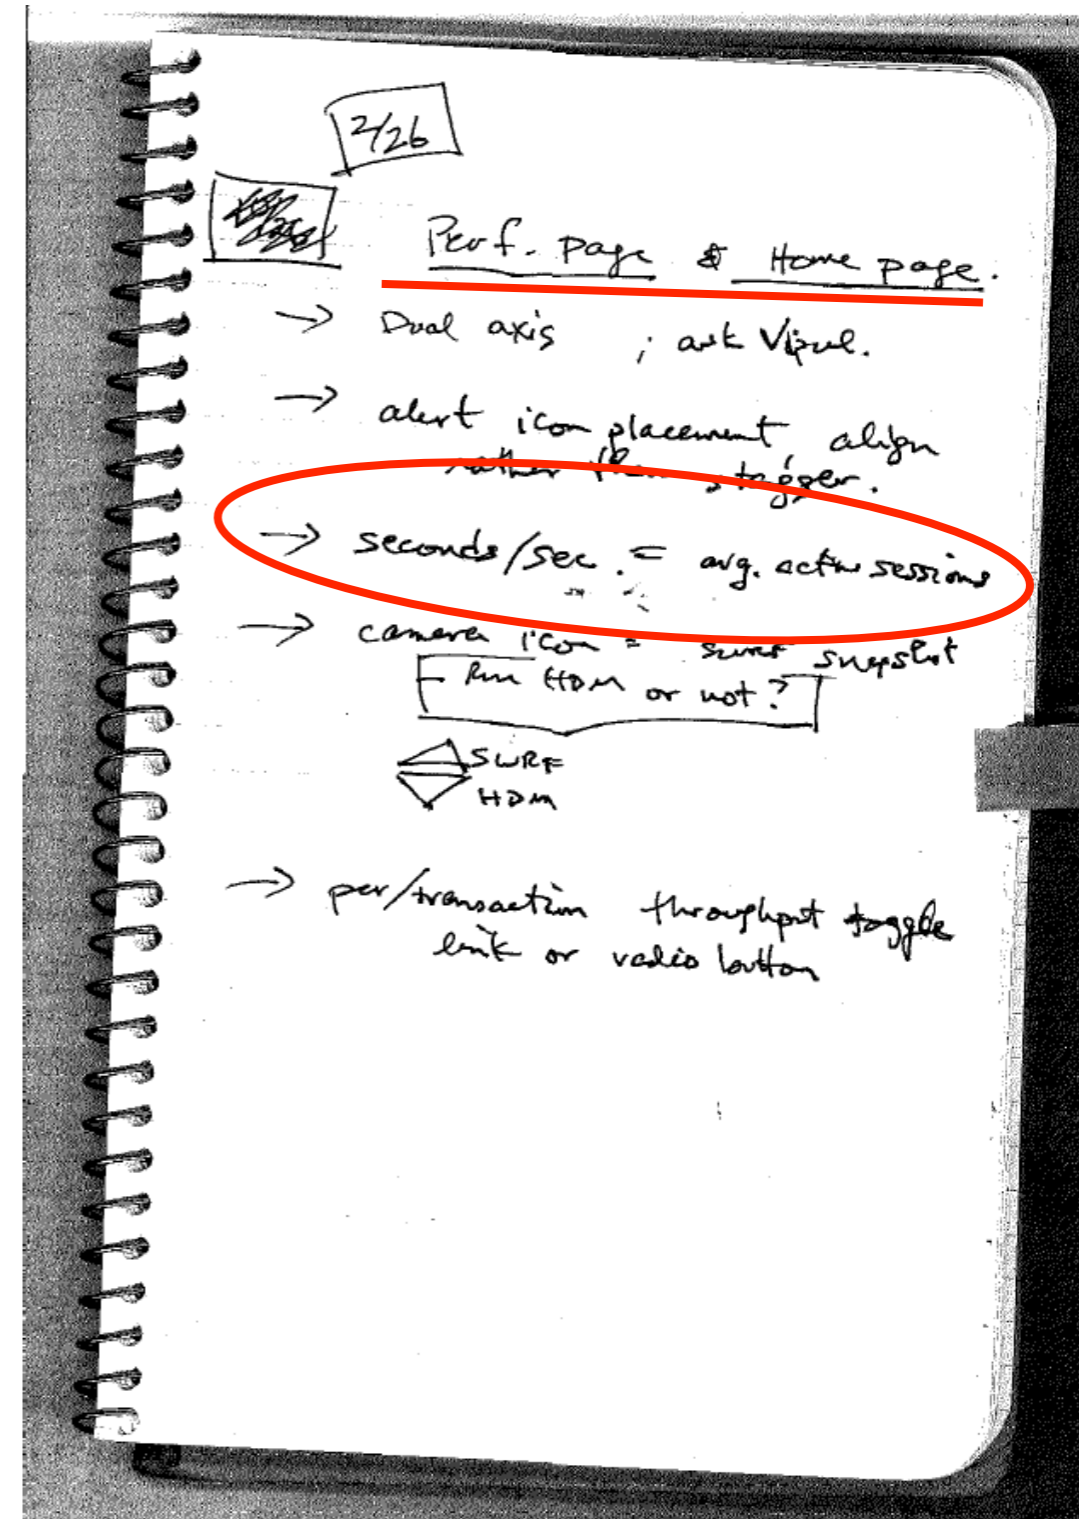 2/26
Perf. page & Home page.
→ Dual axis ; ask Vipul.
→ alert icon placement, align
rather than stagger.
→ seconds/sec. = avg. active sessions
→ camera icon = swrf snapshot
Run HDM or not?
SWRF
HDM
→ per/transaction throughput toggle
link or radio button